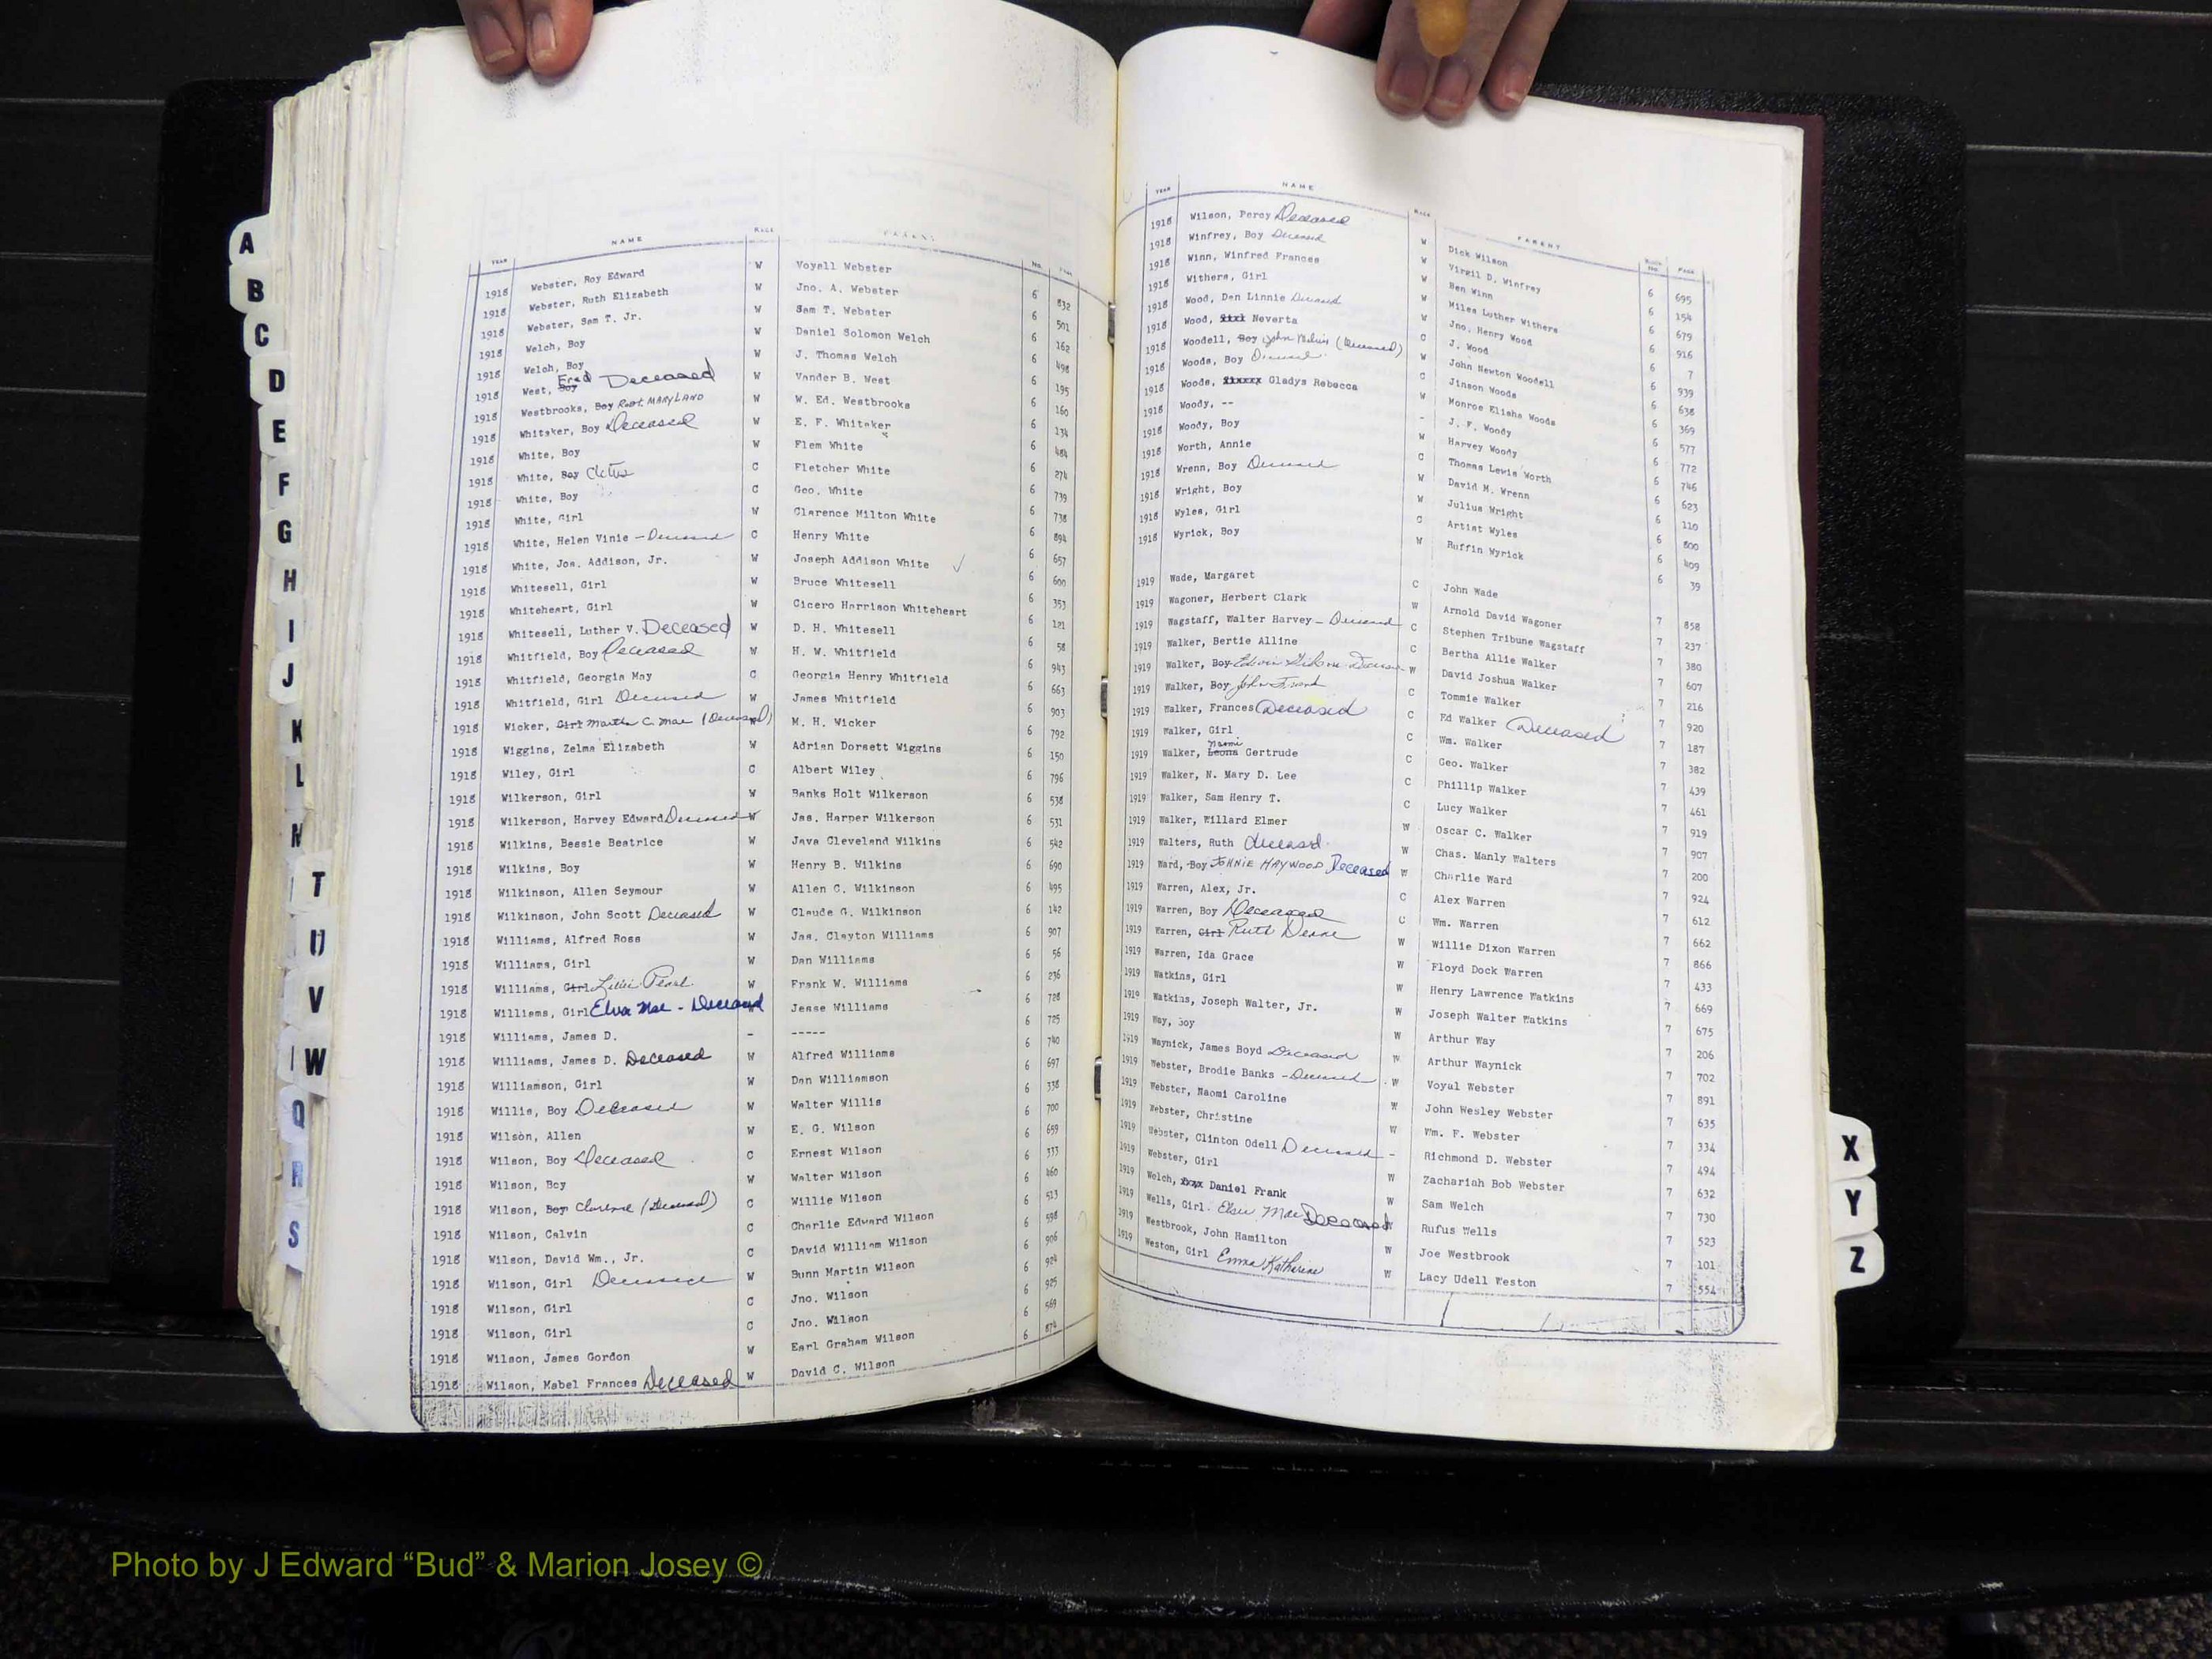 A
B
C
D
E
F
G
H
I
J
K
L
N
T
U
V
W
Q
R
S
YEAR NAME RACE PARENT NO.
1918 Webster, Roy Edward W Voyall Webster 6 832
1918 Webster, Ruth Elizabeth W Jno. A. Webster 6 501
1918 Webster, Sam T. Jr. W Sam T. Webster 6 162
1918 Welch, Boy W Daniel Solomon Welch 6 498
1918 Welch, Boy W J. Thomas Welch 6 195
1918 West, Boy Fred Deceased W Vander B. West 6 160
1918 Westbrooks, Boy Robt. MARYLAND W W. Ed. Westbrooks 6 134
1918 Whitaker, Boy Deceased W E. F. Whitaker 6 484
1918 White, Boy W Flem White 6 274
1918 White, Boy Cletus C Fletcher White 6 739
1918 White, Boy C Geo. White 6 738
1918 White, Girl W Clarence Milton White 6 894
1918 White, Helen Vinie - Deceased C Henry White 6 657
1918 White, Jos. Addison, Jr. W Joseph Addison White ✓ 6 600
1918 Whitesell, Girl W Bruce Whitesell 6 353
1918 Whiteheart, Girl W Cicero Harrison Whiteheart 6 121
1918 Whitesell, Luther V. Deceased W D. H. Whitesell 6 58
1918 Whitfield, Boy Deceased W H. W. Whitfield 6 943
1918 Whitfield, Georgia May C Georgia Henry Whitfield 6 663
1918 Whitfield, Girl Deceased W James Whitfield 6 903
1918 Wicker, Girl Martha C. Mae (Deceased) W M. H. Wicker 6 792
1918 Wiggins, Zelma Elizabeth W Adrian Dorsett Wiggins 6 150
1918 Wiley, Girl C Albert Wiley 6 796
1918 Wilkerson, Girl W Banks Holt Wilkerson 6 538
1918 Wilkerson, Harvey Edward Deceased W Jas. Harper Wilkerson 6 531
1918 Wilkins, Bessie Beatrice W Java Cleveland Wilkins 6 542
1918 Wilkins, Boy W Henry B. Wilkins 6 690
1918 Wilkinson, Allen Seymour W Allen C. Wilkinson 6 495
1918 Wilkinson, John Scott Deceased W Claude G. Wilkinson 6 142
1918 Williams, Alfred Ross W Jas. Clayton Williams 6 907
1918 Williams, Girl W Dan Williams 6 56
1918 Williams, Girl Lillie Pearl W Frank W. Williams 6 236
1918 Williams, Girl Elva Mae - Deceased W Jesse Williams 6 728
1918 Williams, James D. - ----- 6 725
1918 Williams, James D. Deceased W Alfred Williams 6 740
1918 Williamson, Girl W Dan Williamson 6 697
1918 Willis, Boy Deceased W Walter Willis 6 338
1918 Wilson, Allen W E. G. Wilson 6 700
1918 Wilson, Boy Deceased C Ernest Wilson 6 659
1918 Wilson, Boy W Walter Wilson 6 333
1918 Wilson, Boy Clarence (Deceased) C Willie Wilson 6 460
1918 Wilson, Calvin C Charlie Edward Wilson 6 513
1918 Wilson, David Wm., Jr. C David William Wilson 6 598
1918 Wilson, Girl Deceased W Bunn Martin Wilson 6 906
1918 Wilson, Girl C Jno. Wilson 6 924
1918 Wilson, Girl C Jno. Wilson 6 925
1918 Wilson, James Gordon W Earl Graham Wilson 6 569
1918 Wilson, Mabel Frances Deceased W David C. Wilson 6 874
YEAR NAME RACE PARENT BOOK NO. PAGE
1918 Wilson, Percy Deceased W Dick Wilson 6 695
1918 Winfrey, Boy Deceased W Virgil D. Winfrey 6 154
1918 Winn, Winfred Frances W Ben Winn 6 679
1918 Withers, Girl W Miles Luther Withers 6 916
1918 Wood, Den Linnie Deceased W Jno. Henry Wood 6 7
1918 Wood, Neverta C J. Wood 6 939
1918 Woodell, Boy John Melvin (Deceased) W John Newton Woodell 6 638
1918 Woods, Boy Deceased C Jinson Woods 6 369
1918 Woods, Gladys Rebecca W Monroe Elisha Woods 6 577
1918 Woody, -- - J. F. Woody 6 772
1918 Woody, Boy W Harvey Woody 6 746
1918 Worth, Annie C Thomas Lewis Worth 6 623
1918 Wrenn, Boy Deceased W David M. Wrenn 6 110
1918 Wright, Boy W Julius Wright 6 800
1918 Wyles, Girl C Artist Wyles 6 409
1918 Wyrick, Boy W Ruffin Wyrick 6 39
1919 Wade, Margaret C John Wade 7 858
1919 Wagoner, Herbert Clark W Arnold David Wagoner 7 237
1919 Wagstaff, Walter Harvey - Deceased C Stephen Tribune Wagstaff 7 380
1919 Walker, Bertie Alline C Bertha Allie Walker 7 607
1919 Walker, Boy Edwin W David Joshua Walker 7 216
1919 Walker, Boy John Frank C Tommie Walker 7 920
1919 Walker, Frances Deceased C Ed Walker Deceased 7 187
1919 Walker, Girl C Wm. Walker 7 382
1919 Walker, Leona Naomi Gertrude C Geo. Walker 7 439
1919 Walker, N. Mary D. Lee C Phillip Walker 7 461
1919 Walker, Sam Henry T. C Lucy Walker 7 919
1919 Walker, Willard Elmer W Oscar C. Walker 7 907
1919 Walters, Ruth deceased W Chas. Manly Walters 7 200
1919 Ward, Boy JOHNIE HAYWOOD Deceased W Charlie Ward 7 924
1919 Warren, Alex, Jr. C Alex Warren 7 612
1919 Warren, Boy Deceased C Wm. Warren 7 662
1919 Warren, Girl Ruth Deane W Willie Dixon Warren 7 866
1919 Warren, Ida Grace W Floyd Dock Warren 7 433
1919 Watkins, Girl W Henry Lawrence Watkins 7 669
1919 Watkins, Joseph Walter, Jr. W Joseph Walter Watkins 7 675
1919 Way, Boy W Arthur Way 7 206
1919 Waynick, James Boyd Deceased W Arthur Waynick 7 702
1919 Webster, Brodie Banks - Deceased W Voyal Webster 7 891
1919 Webster, Naomi Caroline W John Wesley Webster 7 635
1919 Webster, Christine W Wm. F. Webster 7 334
1919 Webster, Clinton Odell Deceased - Richmond D. Webster 7 494
1919 Webster, Girl W Zachariah Bob Webster 7 632
1919 Welch, Daniel Frank W Sam Welch 7 730
1919 Wells, Girl Elsie Mae Deceased W Rufus Wells 7 523
1919 Westbrook, John Hamilton W Joe Westbrook 7 101
1919 Weston, Girl Emma Katherine W Lacy Udell Weston 7 554
X
Y
Z
Photo by J Edward “Bud” & Marion Josey ©